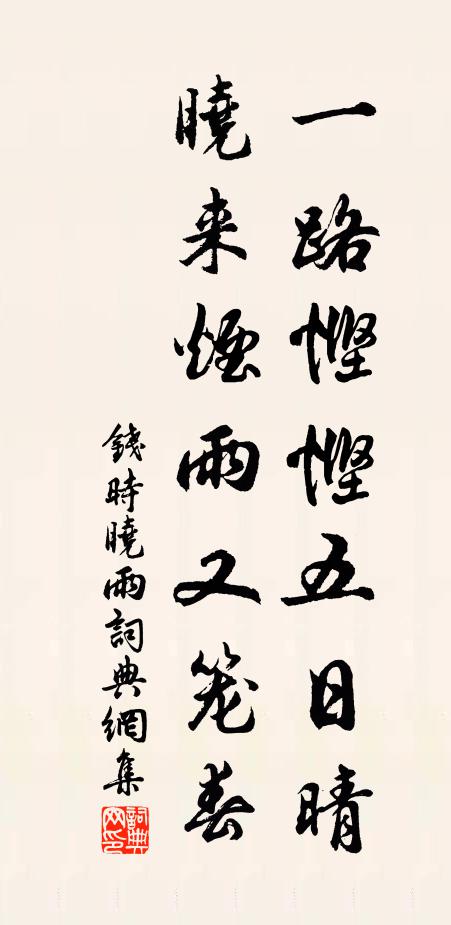 一路慳慳五日晴
曉来煙雨又笼春
錢時曉雨詞典網集
詞典網印